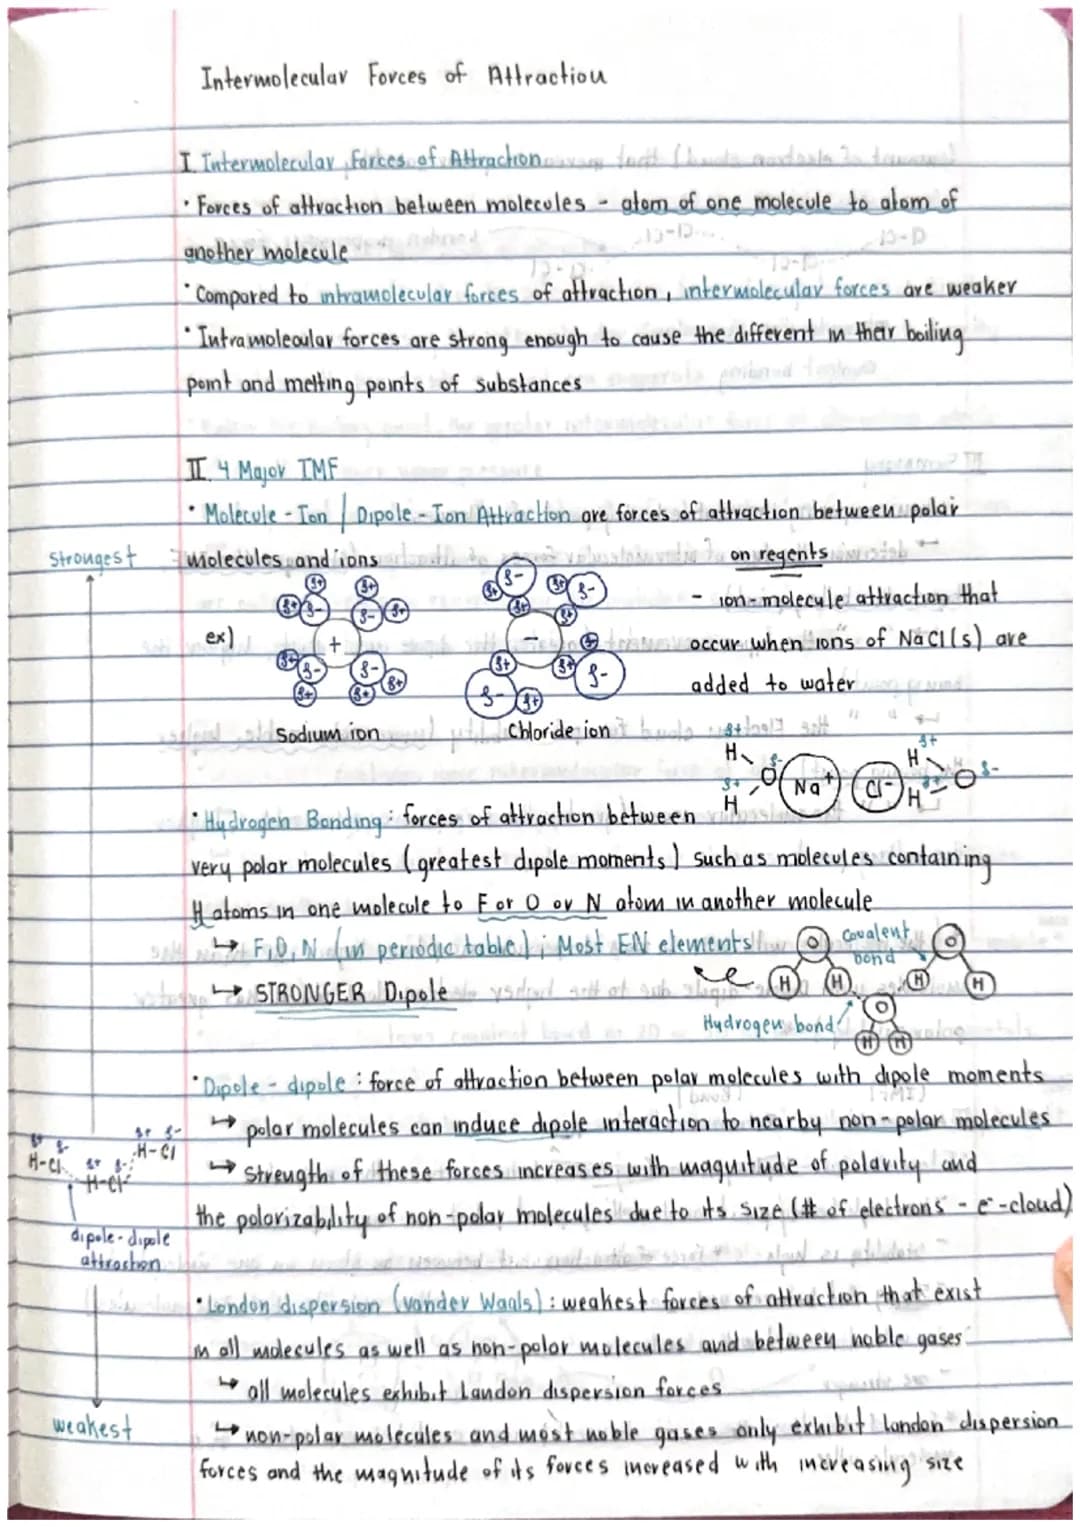 Intermolecular Forces of Attraction
I Intermolecular Forces of Attraction
· Forces of attraction between molecules - atom of one molecule to atom of
another molecule
· Compared to intramolecular forces of attraction, intermolecular forces are weaker
· Intramolecular forces are strong enough to cause the different in their boiling
point and melting points of substances
II. 4 Major IMF
· Molecule - Ion / Dipole - Ion Attraction are forces of attraction between polar
Strongest
molecules and ions
on regents
- ion-molecule attraction that
occur when ions of NaCl(s) are
added to water
ex)
δ+ δ+
δ+ δ- δ- δ+
+
δ+ δ- δ- δ+
δ+ δ+
Sodium ion
δ+ δ- δ+ δ-
δ+ δ+
-
δ+ δ+ δ+
δ- δ+ δ-
Chloride ion
δ+ H δ- O Na+
δ+ H
Cl- H δ+ O δ-
H δ+
· Hydrogen Bonding : forces of attraction between
very polar molecules (greatest dipole moments) such as molecules containing
H atoms in one molecule to F or O or N atom in another molecule
↳ F, O, N (in periodic table); Most EN elements
↳ STRONGER Dipole
O Covalent bond O
H H H H
Hydrogen bond O
H H
· Dipole - dipole : force of attraction between polar molecules with dipole moments
↳ polar molecules can induce dipole interaction to nearby non-polar molecules
↳ Strength of these forces increases with magnitude of polarity and
the polarizability of non-polar molecules due to its size (# of electrons - e⁻-cloud)
δ+ δ- δ+ δ-
H-Cl H-Cl
δ+ δ-
H-Cl
dipole-dipole
attraction
· London dispersion (vander Waals) : weakest forces of attraction that exist
in all molecules as well as non-polar molecules and between noble gases
↳ all molecules exhibit London dispersion forces
weakest
↳ non-polar molecules and most noble gases only exhibit London dispersion
forces and the magnitude of its forces increased with increasing size